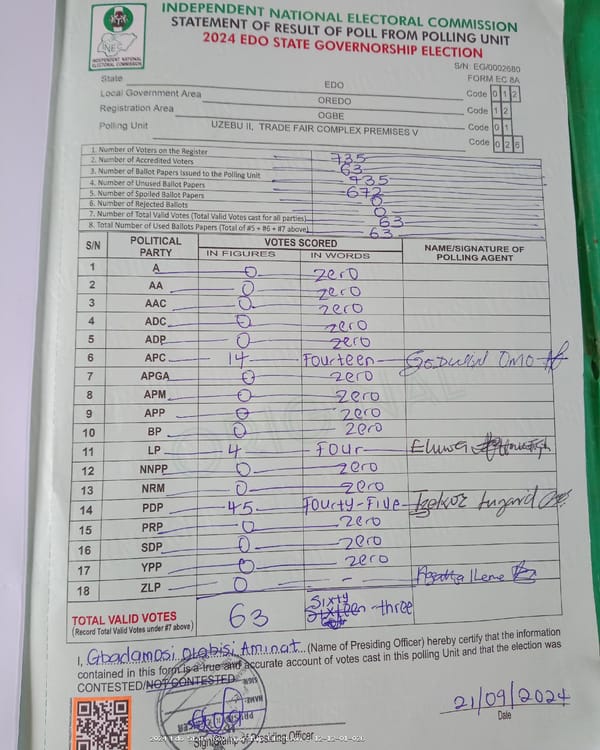 INDEPENDENT NATIONAL ELECTORAL COMMISSION
STATEMENT OF RESULT OF POLL FROM POLLING UNIT
2024 EDO STATE GOVERNORSHIP ELECTION
INEC
INDEPENDENT NATIONAL
ELECTORAL COMMISSION
S/N: EG/0002680
FORM EC 8A
State EDO Code 0 1 2
Local Government Area OREDO Code 1 2
Registration Area OGBE Code 0 1
Polling Unit UZEBU II, TRADE FAIR COMPLEX PREMISES V Code 0 2 6
1. Number of Voters on the Register 735
2. Number of Accredited Voters 63
3. Number of Ballot Papers Issued to the Polling Unit 735
4. Number of Unused Ballot Papers 672
5. Number of Spoiled Ballot Papers 0
6. Number of Rejected Ballots 0
7. Number of Total Valid Votes (Total Valid Votes cast for all parties) 63
8. Total Number of Used Ballots Papers (Total of #5 + #6 + #7 above) 63
S/N POLITICAL PARTY VOTES SCORED NAME/SIGNATURE OF POLLING AGENT
IN FIGURES IN WORDS
1 A 0 zero
2 AA 0 zero
3 AAC 0 zero
4 ADC 0 zero
5 ADP 0 zero
6 APC 14 Fourteen Godwin Omo
7 APGA 0 zero
8 APM 0 zero
9 APP 0 zero
10 BP 0 zero
11 LP 4 Four
12 NNPP 0 zero
13 NRM 0 zero
14 PDP 45 Fourty-Five Lugard
15 PRP 0 zero
16 SDP 0 zero
17 YPP 0 zero
18 ZLP 0 -
TOTAL VALID VOTES 63 Sixty three
(Record Total Valid Votes under #7 above)
I, Gbadamosi Olabisi Aminat (Name of Presiding Officer) hereby certify that the information
contained in this form is a true and accurate account of votes cast in this polling Unit and that the election was
CONTESTED/NOT CONTESTED.
21/09/2024
Date
Sign/Stamp of Presiding Officer